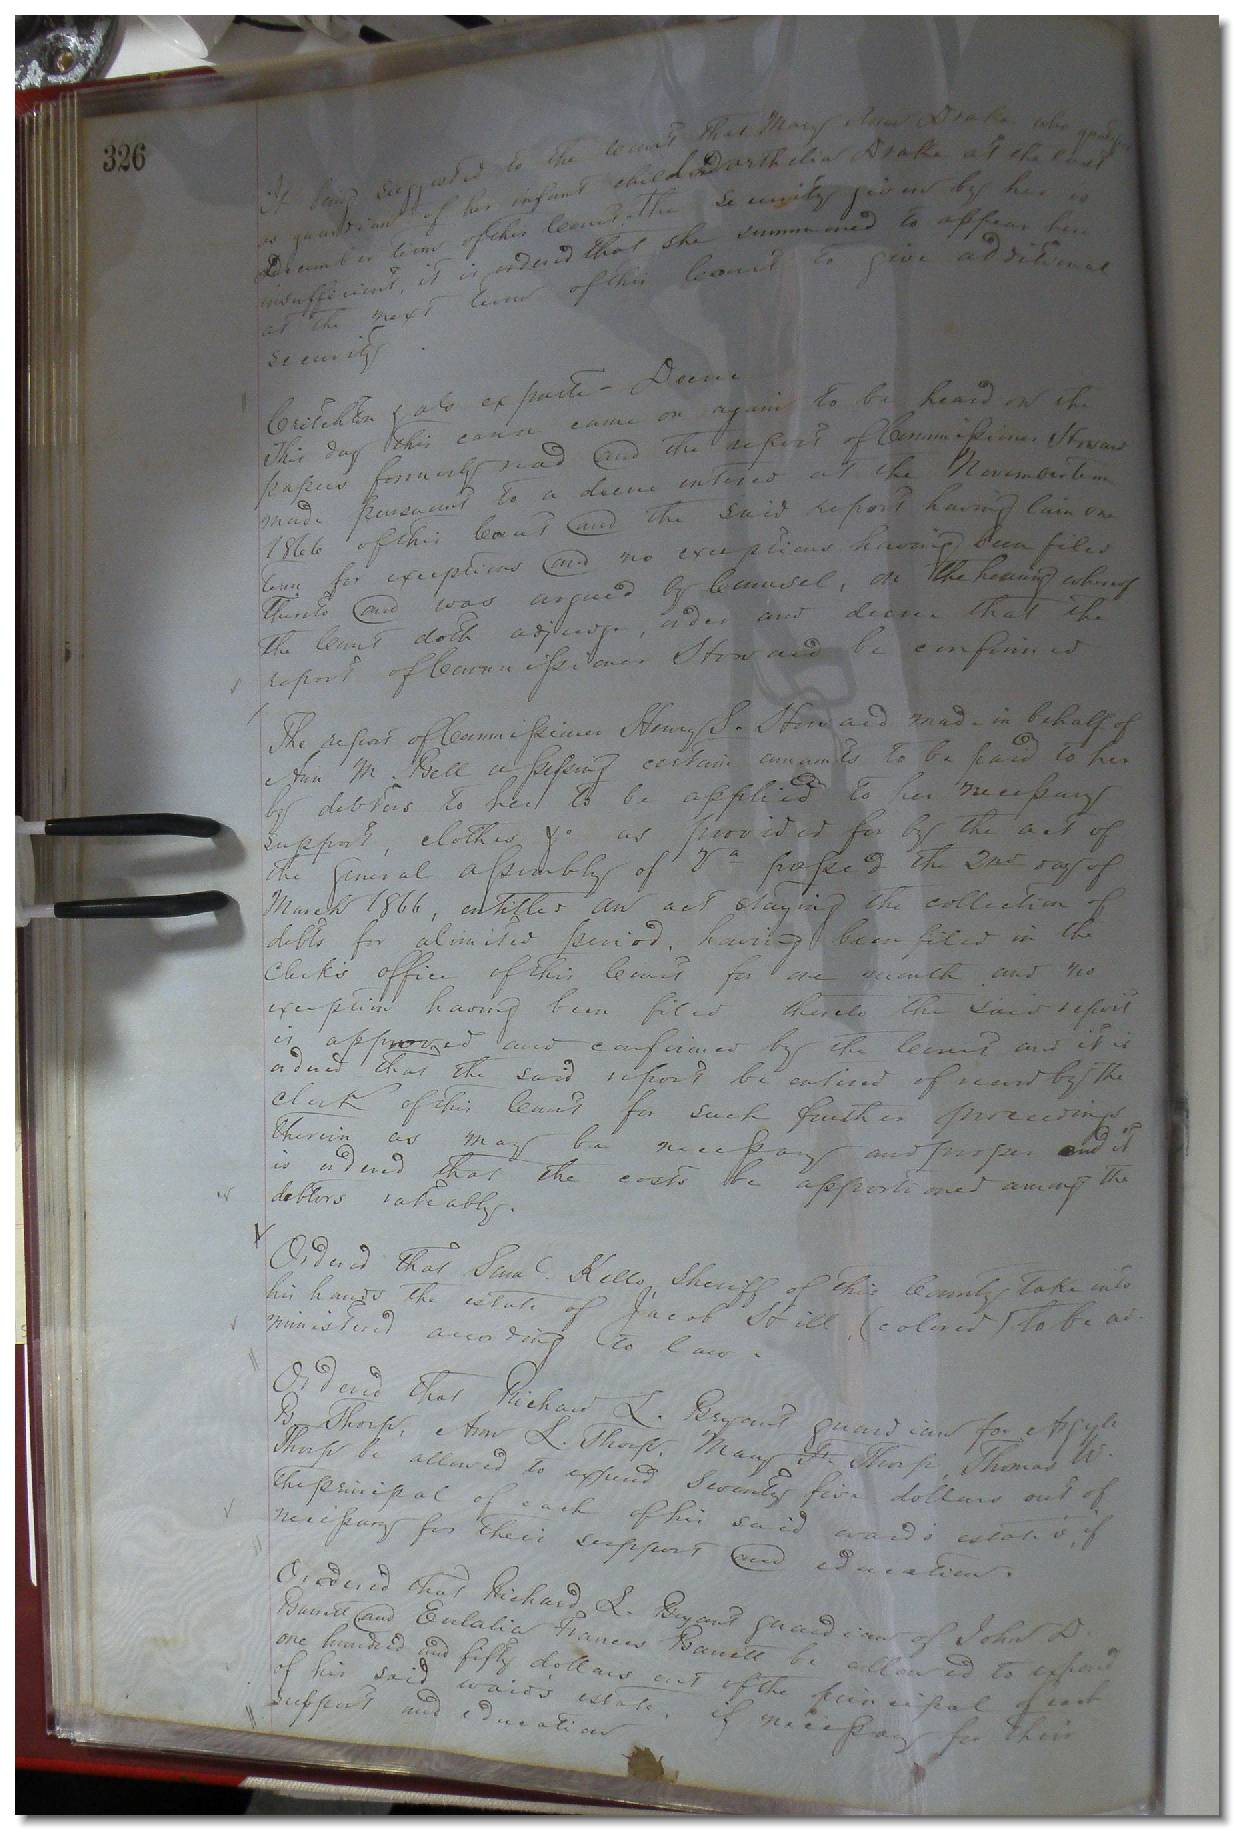 326
It being suggested to the Court that Mary Ann Drake who
as guardian of her infant child Dorthelia Drake at the last
December term of this Court the security given by her is
insufficient, it is ordered that she summoned to appear here
at the next term of this Court to give additional
security
Critchton & als ex parte - Decree
This day this cause came on again to be heard on the
papers formerly read and the report of Commissioner Howard
made persuant to a decree entered at the November term
1866 of this Court and the said report having lain one
term for exceptions and no exceptions having been filed
thereto and was argued by Counsel, on the hearing whereof
the Court doth adjudge, order and decree that the
report of Commissioner Howard be confirmed
The report of Commissioner Henry S. Howard made in behalf of
Ann M. Bell assessing certain amounts to be paid to her
by debtors to her to be applied to her necessary
support, clothes &c as provided for by the act of
the General assembly of Va passed the 2nd day of
March 1866, entitled an act staying the collection of
debts for a limited period, having been filed in the
Clerk's office of this Court for one month and no
exception having been filed thereto the said report
is approved and confirmed by the Court and it is
ordered that the said report be entered of record by the
clerk of this Court for such further proceedings
therein as may be necessary and proper and it
is ordered that the costs be apportioned among the
debtors rateably.
Ordered that Saml. Kello, Sheriff of this County take into
his hands the estate of Jacob Still (colored) to be ad-
ministered according to law.
Ordered that Richard L. Bryant guardian for Argyle
B. Thorp, Ann L. Thorp, Mary Thorp, Thomas W.
Thorp be allowed to expend Seventy five dollars out of
the principal of each of his said ward's estates, if
necessary for their support and education.
Ordered that Richard L. Bryant guardian of John D.
Barrett and Eulalia Frances Barrett be allowed to expend
one hundred and fifty dollars out of the principal of each
of his said ward's estate, if necessary for their
support and education